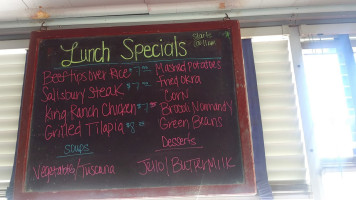 Lunch Specials
Starts
Beef tips over Rice $7
Salisbury Steak $7
King Ranch Chicken $7
Grilled Tilapia $8
Soups
Vegetable/Tuscana
Mashed Potatoes
Fried Okra
Corn
Broccoli Normandy
Green Beans
Desserts
Jello/Buttermilk